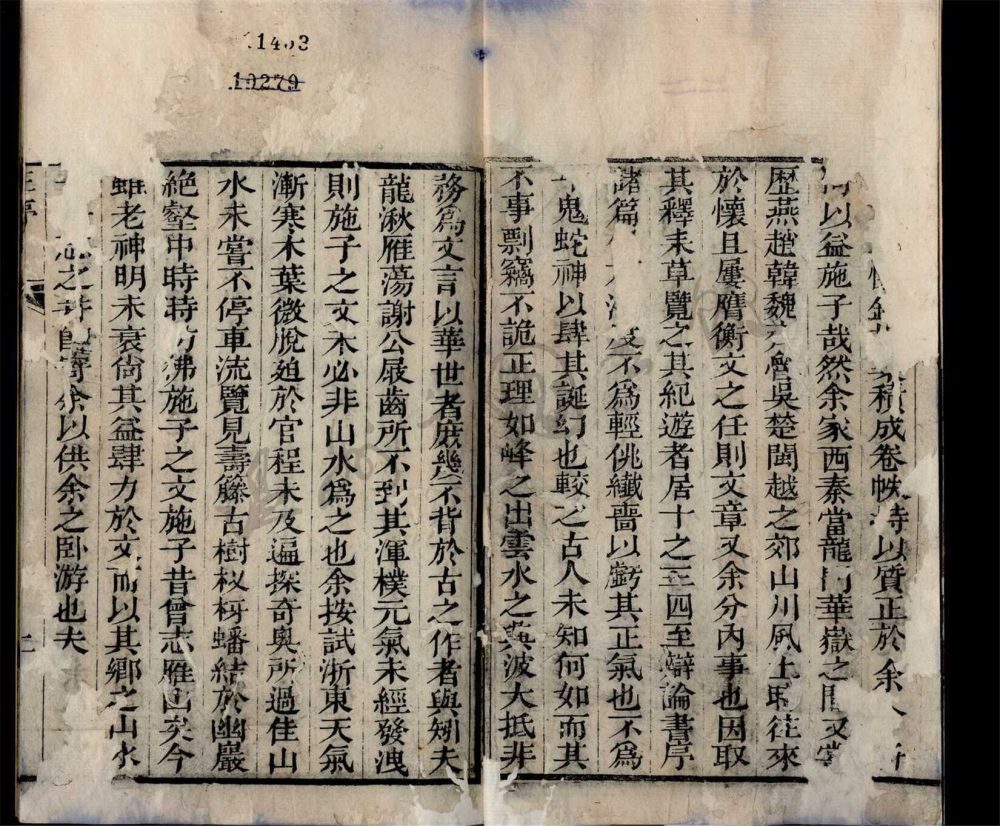 積成卷帙持以質正於余余
以益施子哉然余家西秦當龍門華嶽之間又嘗
歷燕趙韓魏齊魯吳楚閩越之郊山川風土時往來
於懷且屢膺衡文之任則文章又余分內事也因取
其釋耒草覽之其紀遊者居十之三四至辯論書序
諸篇不為輕佻纖嗇以虧其正氣也不為
鬼蛇神以肆其誕幻也較之古人未知何如而其
不事剽竊不詭正理如峰之出雲水之興波大抵非
務為文言以華世者庶幾不背於古之作者與矧夫
龍湫雁蕩謝公屐齒所不到其渾樸元氣未經發洩
則施子之文未必非山水為之也余按試浙東天氣
漸寒木葉微脫廹於官程未及遍探奇奧所過佳山
水未嘗不停車流覽見壽籐古樹杈枒蟠結於幽巖
絕壑中時時彷彿施子之文施子昔曾志雁山矣今
雖老神明未衰尚其益肆力於文而以其鄉之山水
之 寄余以供余之臥游也夫
二
11403
10279